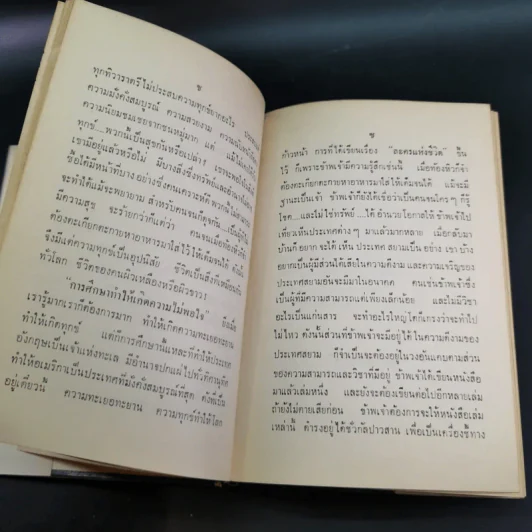 ซ
ทุกทิวาราตรีไม่ประสบความทุกข์ยากอะไร
ความมั่งคั่งสมบูรณ์ ความสวยงาม
ความนิยมชมเชยจากชนหมู่มาก แต่
ทุกข์....พวกนั้นเป็นสุขกันหรือเปล่า?
เขามีอยู่แล้วหรือไม่ มีบางสิ่งซึ่งทรัพย์และอำนาจ
ซื้อได้มีหน้าที่บาง อย่างซึ่งคนเคราะห์ดี พวกนั้นไม่สามารถ
จะทำได้แม้จะพยายาม สำหรับคนจนก็ดุจกัน
มีความสุข จะร้ายกว่าก็แต่ว่า คนจนเมื่อท้องหิว
ต้องตะเกียกตะกายหาอาหารมาใส่ไว้ให้เต็มจนได้ ดังนั้น
จึงมีแต่ความทุกข์เป็นอุปนิสัย ชีวิตเป็นสิ่งที่เหมือนกัน
ทั่วโลก ชีวิตของคนผิวเหลืองหรือผิวขาว!
"การศึกษาทำให้เกิดความไม่พอใจ" ยิ่งเมื่อ
เรารู้มากเราก็ต้องการมาก ทำให้เกิดความทะเยอทะยาน
ทำให้เกิดทุกข์ แต่ก็การศึกษานี้แหละที่ทำให้ประเทศ
อังกฤษเป็นเจ้าแห่งทะเล มีอำนาจปกแผ่ไปทั่วทิศานุทิศ
ทำให้อเมริกาเป็นประเทศที่มั่งคั่งสมบูรณ์ที่สุด ดังที่เป็น
อยู่เดี๋ยวนี้ ความทะเยอทะยาน ความทุกข์ทำให้โลก
ฃ
ก้าวหน้า การที่ได้เขียนเรื่อง "ละครแห่งชีวิต" ขึ้น
ไว้ ก็เพราะข้าพเจ้ามีความรู้สึกเช่นนี้ เมื่อท้องหิวก็จำ
ต้องตะเกียกตะกายหาอาหารมาใส่ให้เต็มจนได้ แม้จะมี
ฐานะเป็นเจ้า ข้าพเจ้าก็ยังได้เชื่อว่าเป็นคนจนใครๆ ก็รู้
โชค....และไม่ใช่ทรัพย์....ได้ อำนวย โอกาสให้ ข้าพเจ้าไป
เที่ยวเห็นประเทศต่าง ๆ มาแล้วมากหลาย เมื่อกลับมา
บ้านก็ อยาก จะได้ เห็น ประเทศ สยามเป็น อย่าง เขา บ้าง
อยากเป็นผู้มีส่วนได้เสียในความดีงาม และความเจริญของ
ประเทศสยามอันจะมีมาในอนาคต คนเช่นข้าพเจ้าซึ่ง
เป็นผู้ที่มีความสามารถแต่เพียงเล็กน้อย และไม่มีวิชา
อะไรเป็นแก่นสาร จะทำอะไรใหญ่โตก็เกรงว่าจะทำไป
ไม่ไหว ดังนั้นส่วนที่ข้าพเจ้าจะมีอยู่ได้ในความดีงามของ
ประเทศสยาม ก็จำเป็นจะต้องอยู่ในวงอันแคบตามส่วน
ของความสามารถและวิชาที่มีอยู่ ข้าพเจ้าได้เขียนหนังสือ
มาแล้วเล่มหนึ่ง และยังจะต้องเขียนต่อไปอีกหลายเล่ม
ถ้ายังไม่ตายเสียก่อน ข้าพเจ้าต้องการจะให้หนังสือเล่ม
เหล่านี้ ดำรงอยู่ได้ชั่วกัลปาวสาน เพื่อเป็นเครื่องชี้ทาง